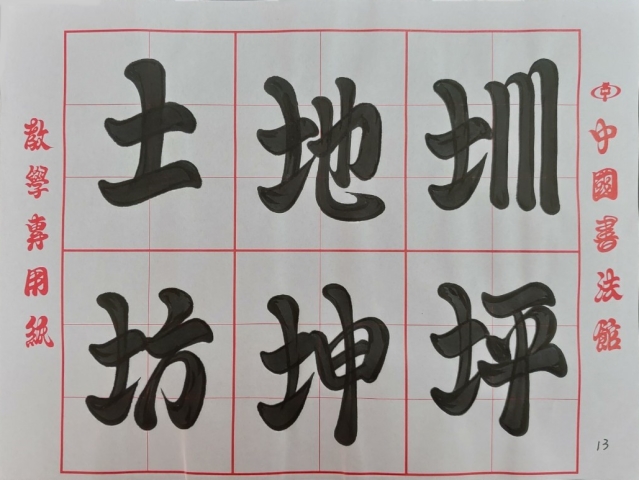 土地圳
坊坤坪
教學專用紙
中國書法館
13